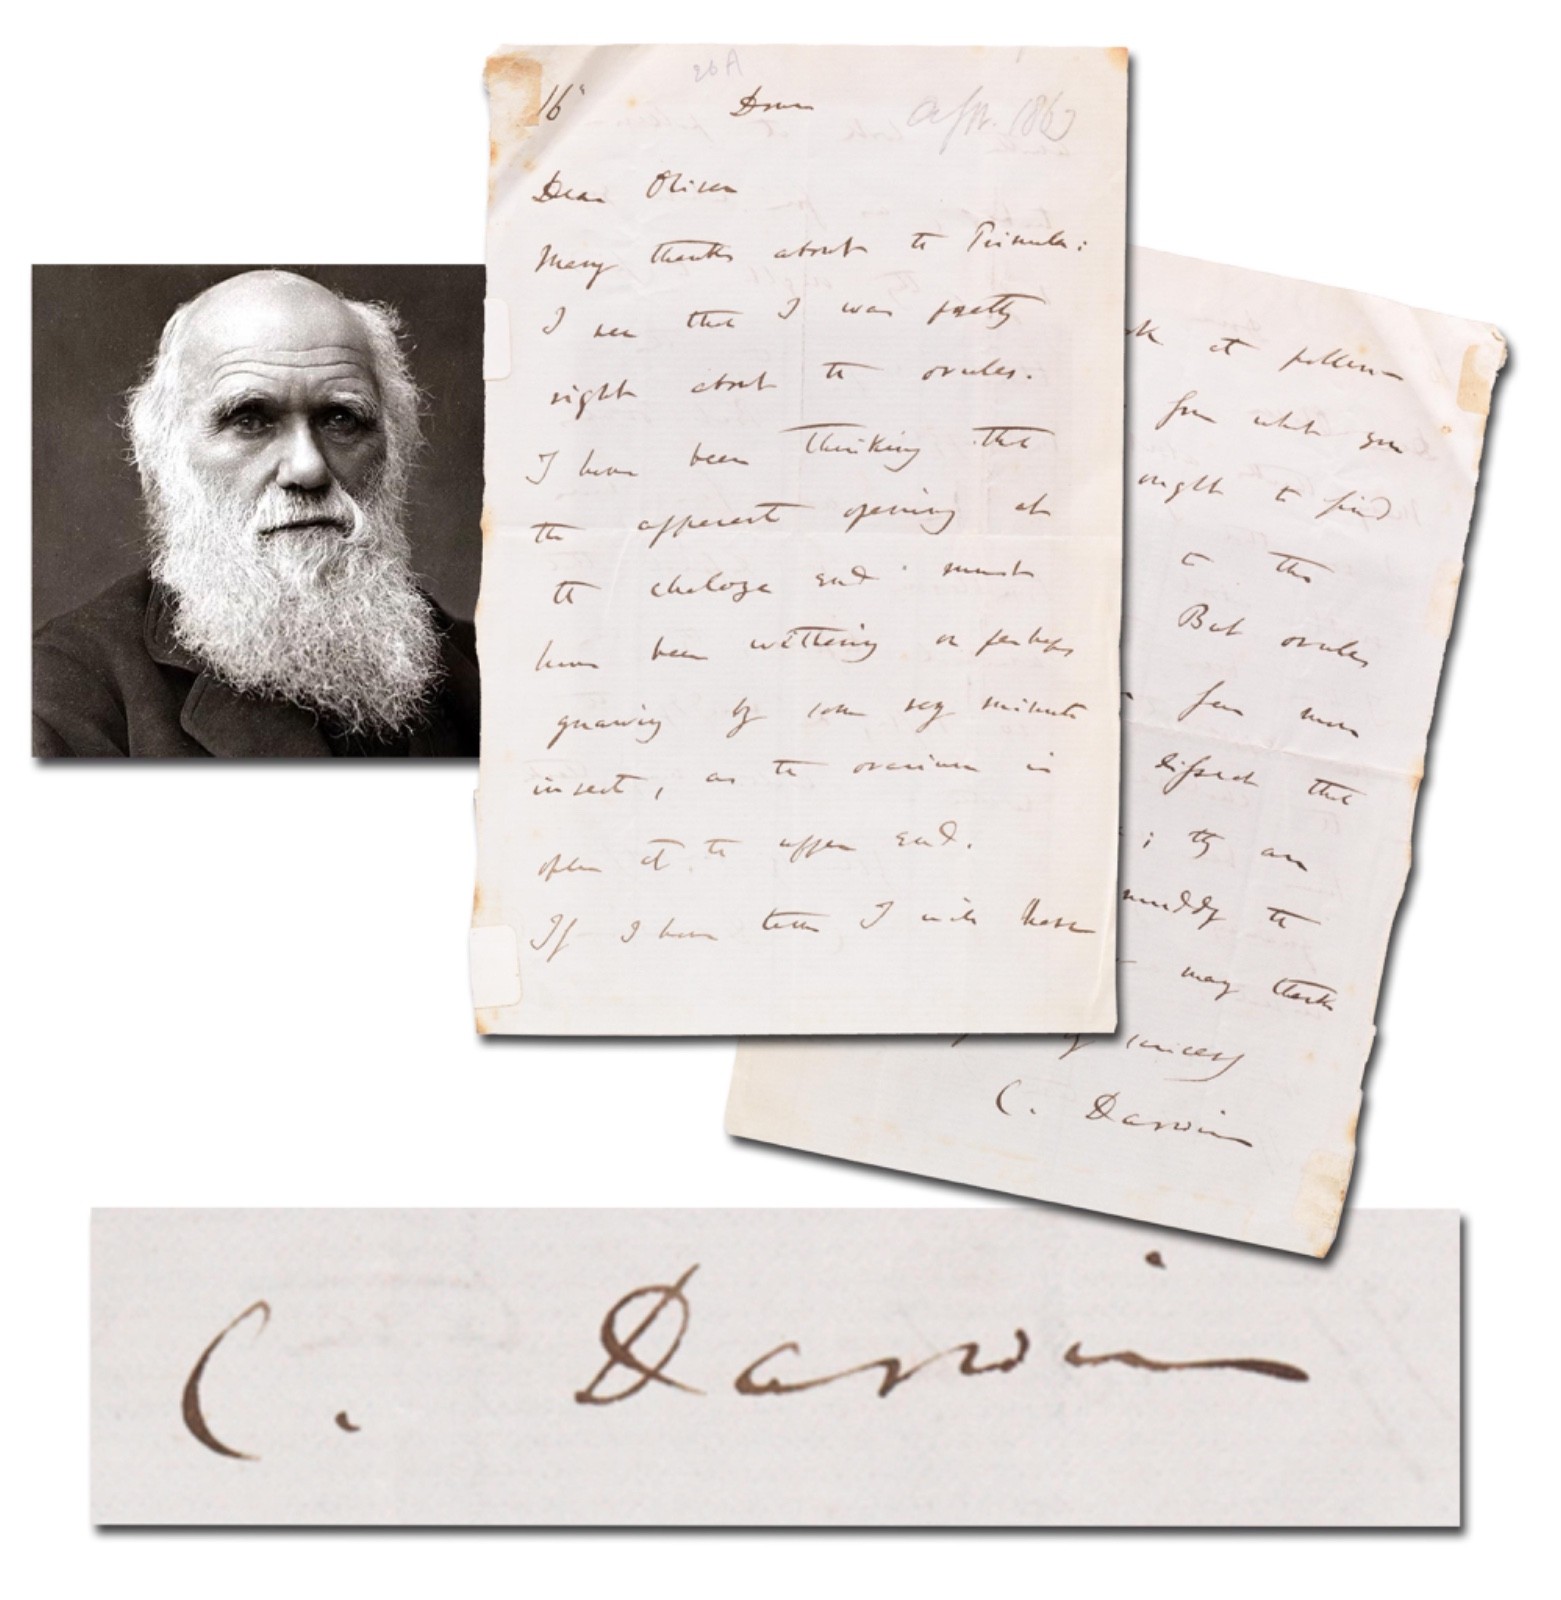 26A
16th Down Apr. 1863
Dear Oliver
Many thanks about the Primula:
I see that I was pretty
right about the ovules.
I have been thinking that
the apparent opening at
the chalaza end must
have been withering or perhaps
gnawing by some very minute
insect, as the ovarium is
open at the upper end.
If I have time I will these
at pollen–
from what you
ought to find
to this
But ovules
few more
dissect that
; they are
muddy the
many thanks
sincerely
C. Darwin
C. Darwin